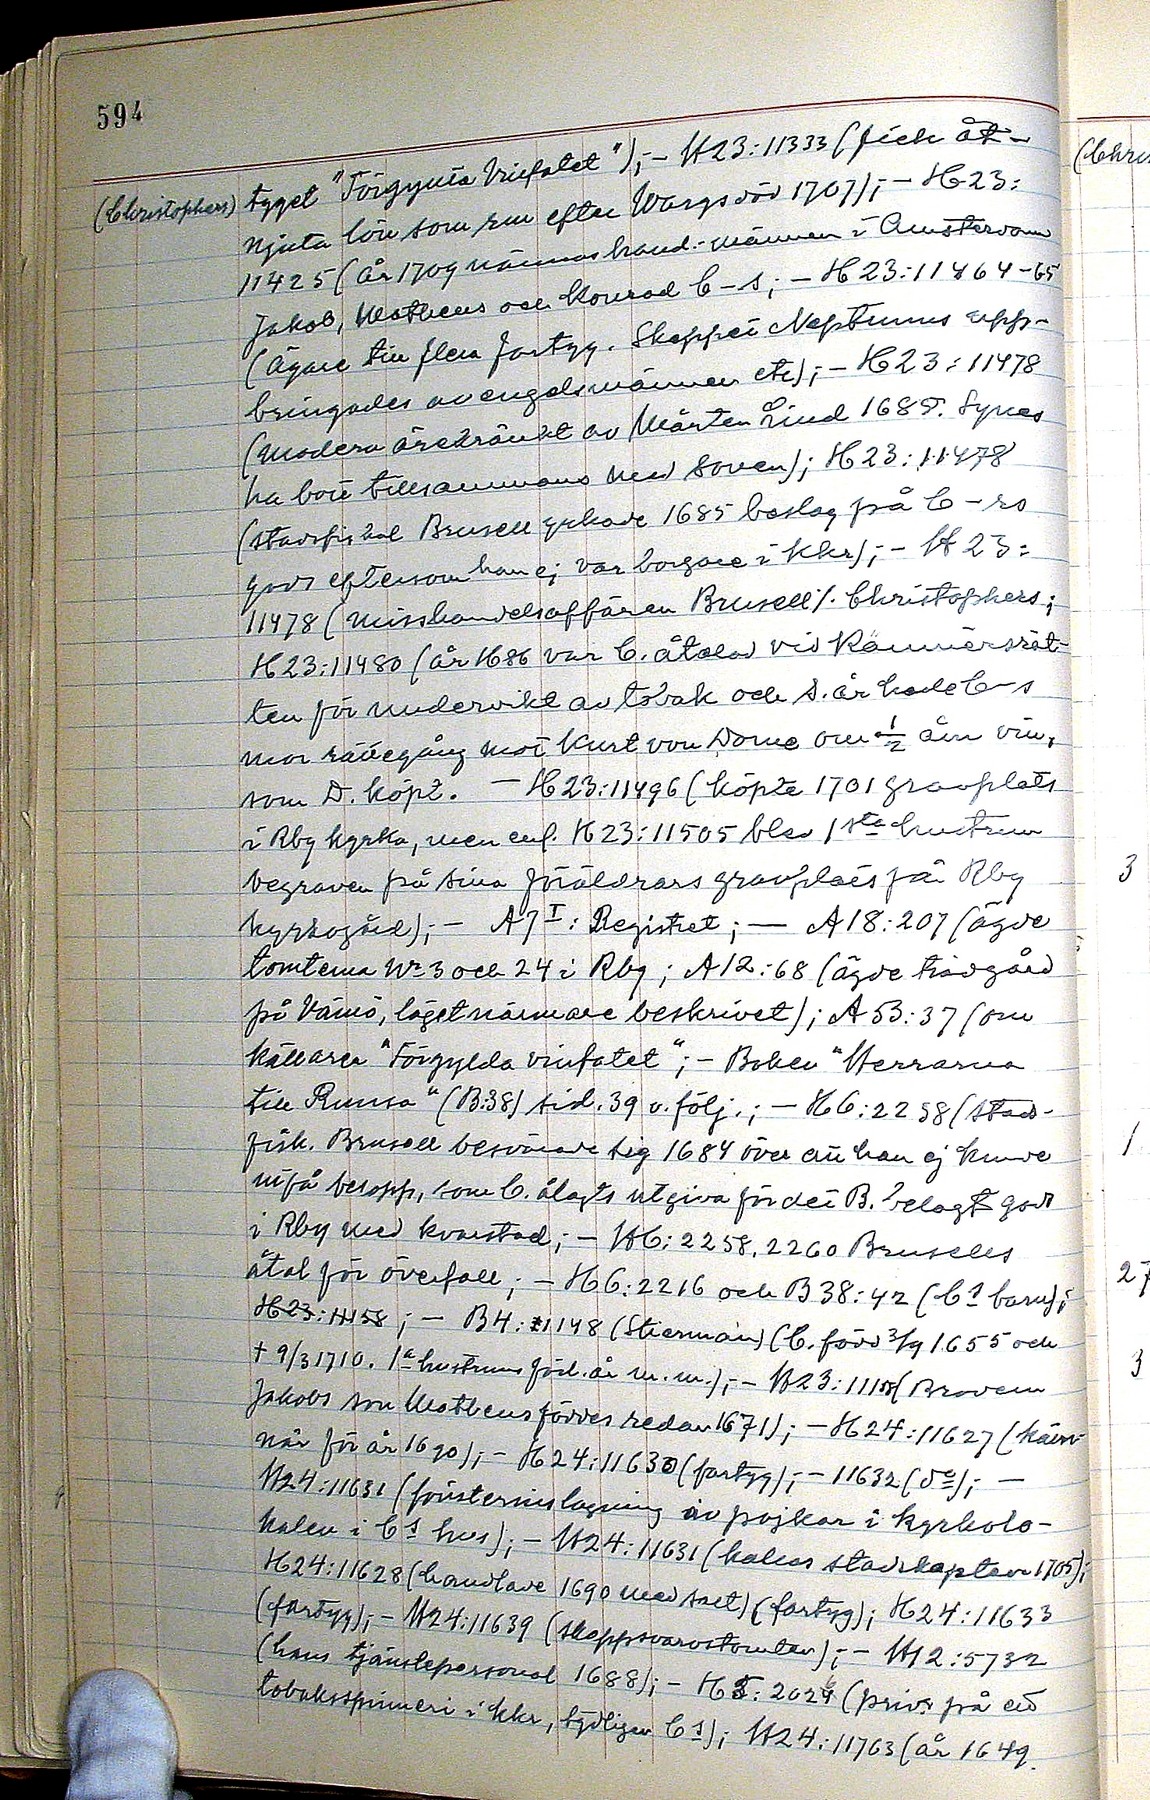 594
(Christophers) tyget "Förgyllda Vinfatet"); - H23:11333 (fick åt-
njuta lön som rm efter Wargs död 1707); - H23:
11425 (år 1709 nämnas hand.-männen i Amsterdam
Jakob, Matheus och Konrad C-s; - H23:11464-65
(ägare till flera fartyg. Skeppet Neptunus upp-
bringades av engelsmännen etc); - H23:11478
(modern ärekränkt av Mårten Lind 1685. Synes
ha bott tillsammans med sonen); H23:11478
(stadsfiskal Brusell yrkade 1685 beslag på C-rs
gods eftersom han ej var borgare i Kkr); - H23:
11478 (misshandelsaffären Brusell /. Christophers;
H23:11480 (år 1686 var C. åtalad vid Kämnärsrät-
ten för undervikt av tobak och s. år hade C-s
mor rättegång mot Kurt von Dome om 1/2 åm vin,
som D. köpt. - H23:11496 (köpte 1701 gravplats
i Rby kyrka, men enl. H23:11505 blev 1sta hustrun
begraven på sina föräldrars gravplats på Rby
kyrkogård); - A7I: Registret; - A18:207 (ägde
tomterna Nr 3 och 24 i Rby; A12:68 (ägde trädgård
på Vämö, läget närmare beskrivet); A53:37 (om
källaren "Förgyllda vinfatet"; - Boken "Herrarna
till Runsa" (B38) sid. 39 o. följ.; - H6:2258 (stads-
fisk. Brusell besvärade sig 1684 över att han ej kunde
utfå besopp, som C. ålagts utgiva för det B. belagt gods
i Rby med kvarstad; - H6:2258, 2260 Brusells
åtal för överfall; - H6:2216 och B38:42 (C:s barn);
H23:11158; - B4:1148 (Stierman) (C. född 3/9 1655 och
† 9/3 1710. 1a hustruns föd. år m.m.); - H23:111 (Brodern
Jakobs son Matheus föddes redan 1671); - H24:11627 (käm-
när för år 1690); - H24:11630 (fartyg); - 11632 (do); -
H24:11631 (fönsterinslagning av pojkar i kyrkolo-
kalen i C:s hus); - H24:11631 (kallas stadskapten 1705);
H24:11628 (handlade 1690 med salt) (fartyg); H24:11633
(fartyg); - H24:11639 (skeppsvarvstomten); - H12:5732
(hans tjänstepersonal 1688); - H5:2024 (privs på ett
tobaksspinneri i Kkr, tydligen C:s); H24:11763 (år 1649.
(Chris
3
1
27
3